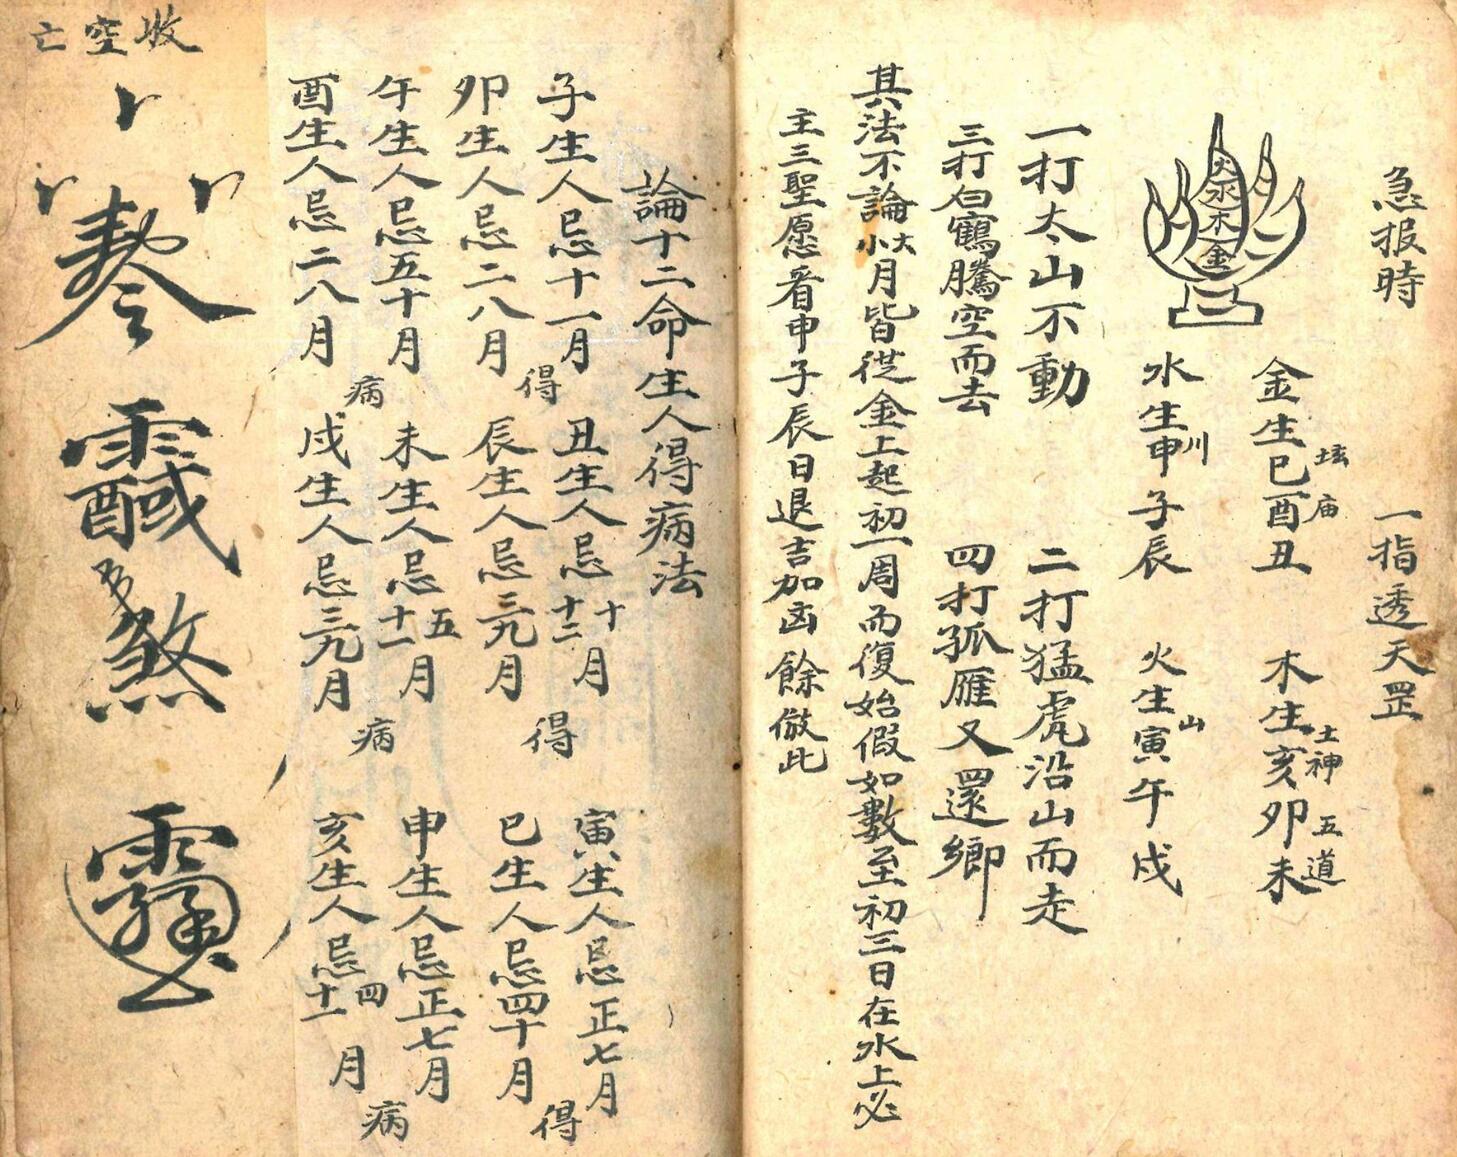 急报時
一指透天罡
金生巳酉丑
坛庙
木生亥卯未
土神五道
水生申子辰
川
火生寅午戌
山
火水木金
一打太山不動
二打猛虎沿山而走
三打白鶴騰空而去
四打孤雁又還鄉
其法不論大小月皆從金上起初一周而復始假如數至初三日在水上必
主三聖愿看申子辰日退吉加凶餘倣此
論十二命生人得病法
子生人忌十一月
丑生人忌十十二月
寅生人忌正七月
卯生人忌二八月
得
辰生人忌三九月
得
巳生人忌四十月
得
午生人忌五十月
未生人忌五十一月
申生人忌正七月
酉生人忌二八月
病
戌生人忌三九月
病
亥生人忌四十一月
病
收空亡
煞